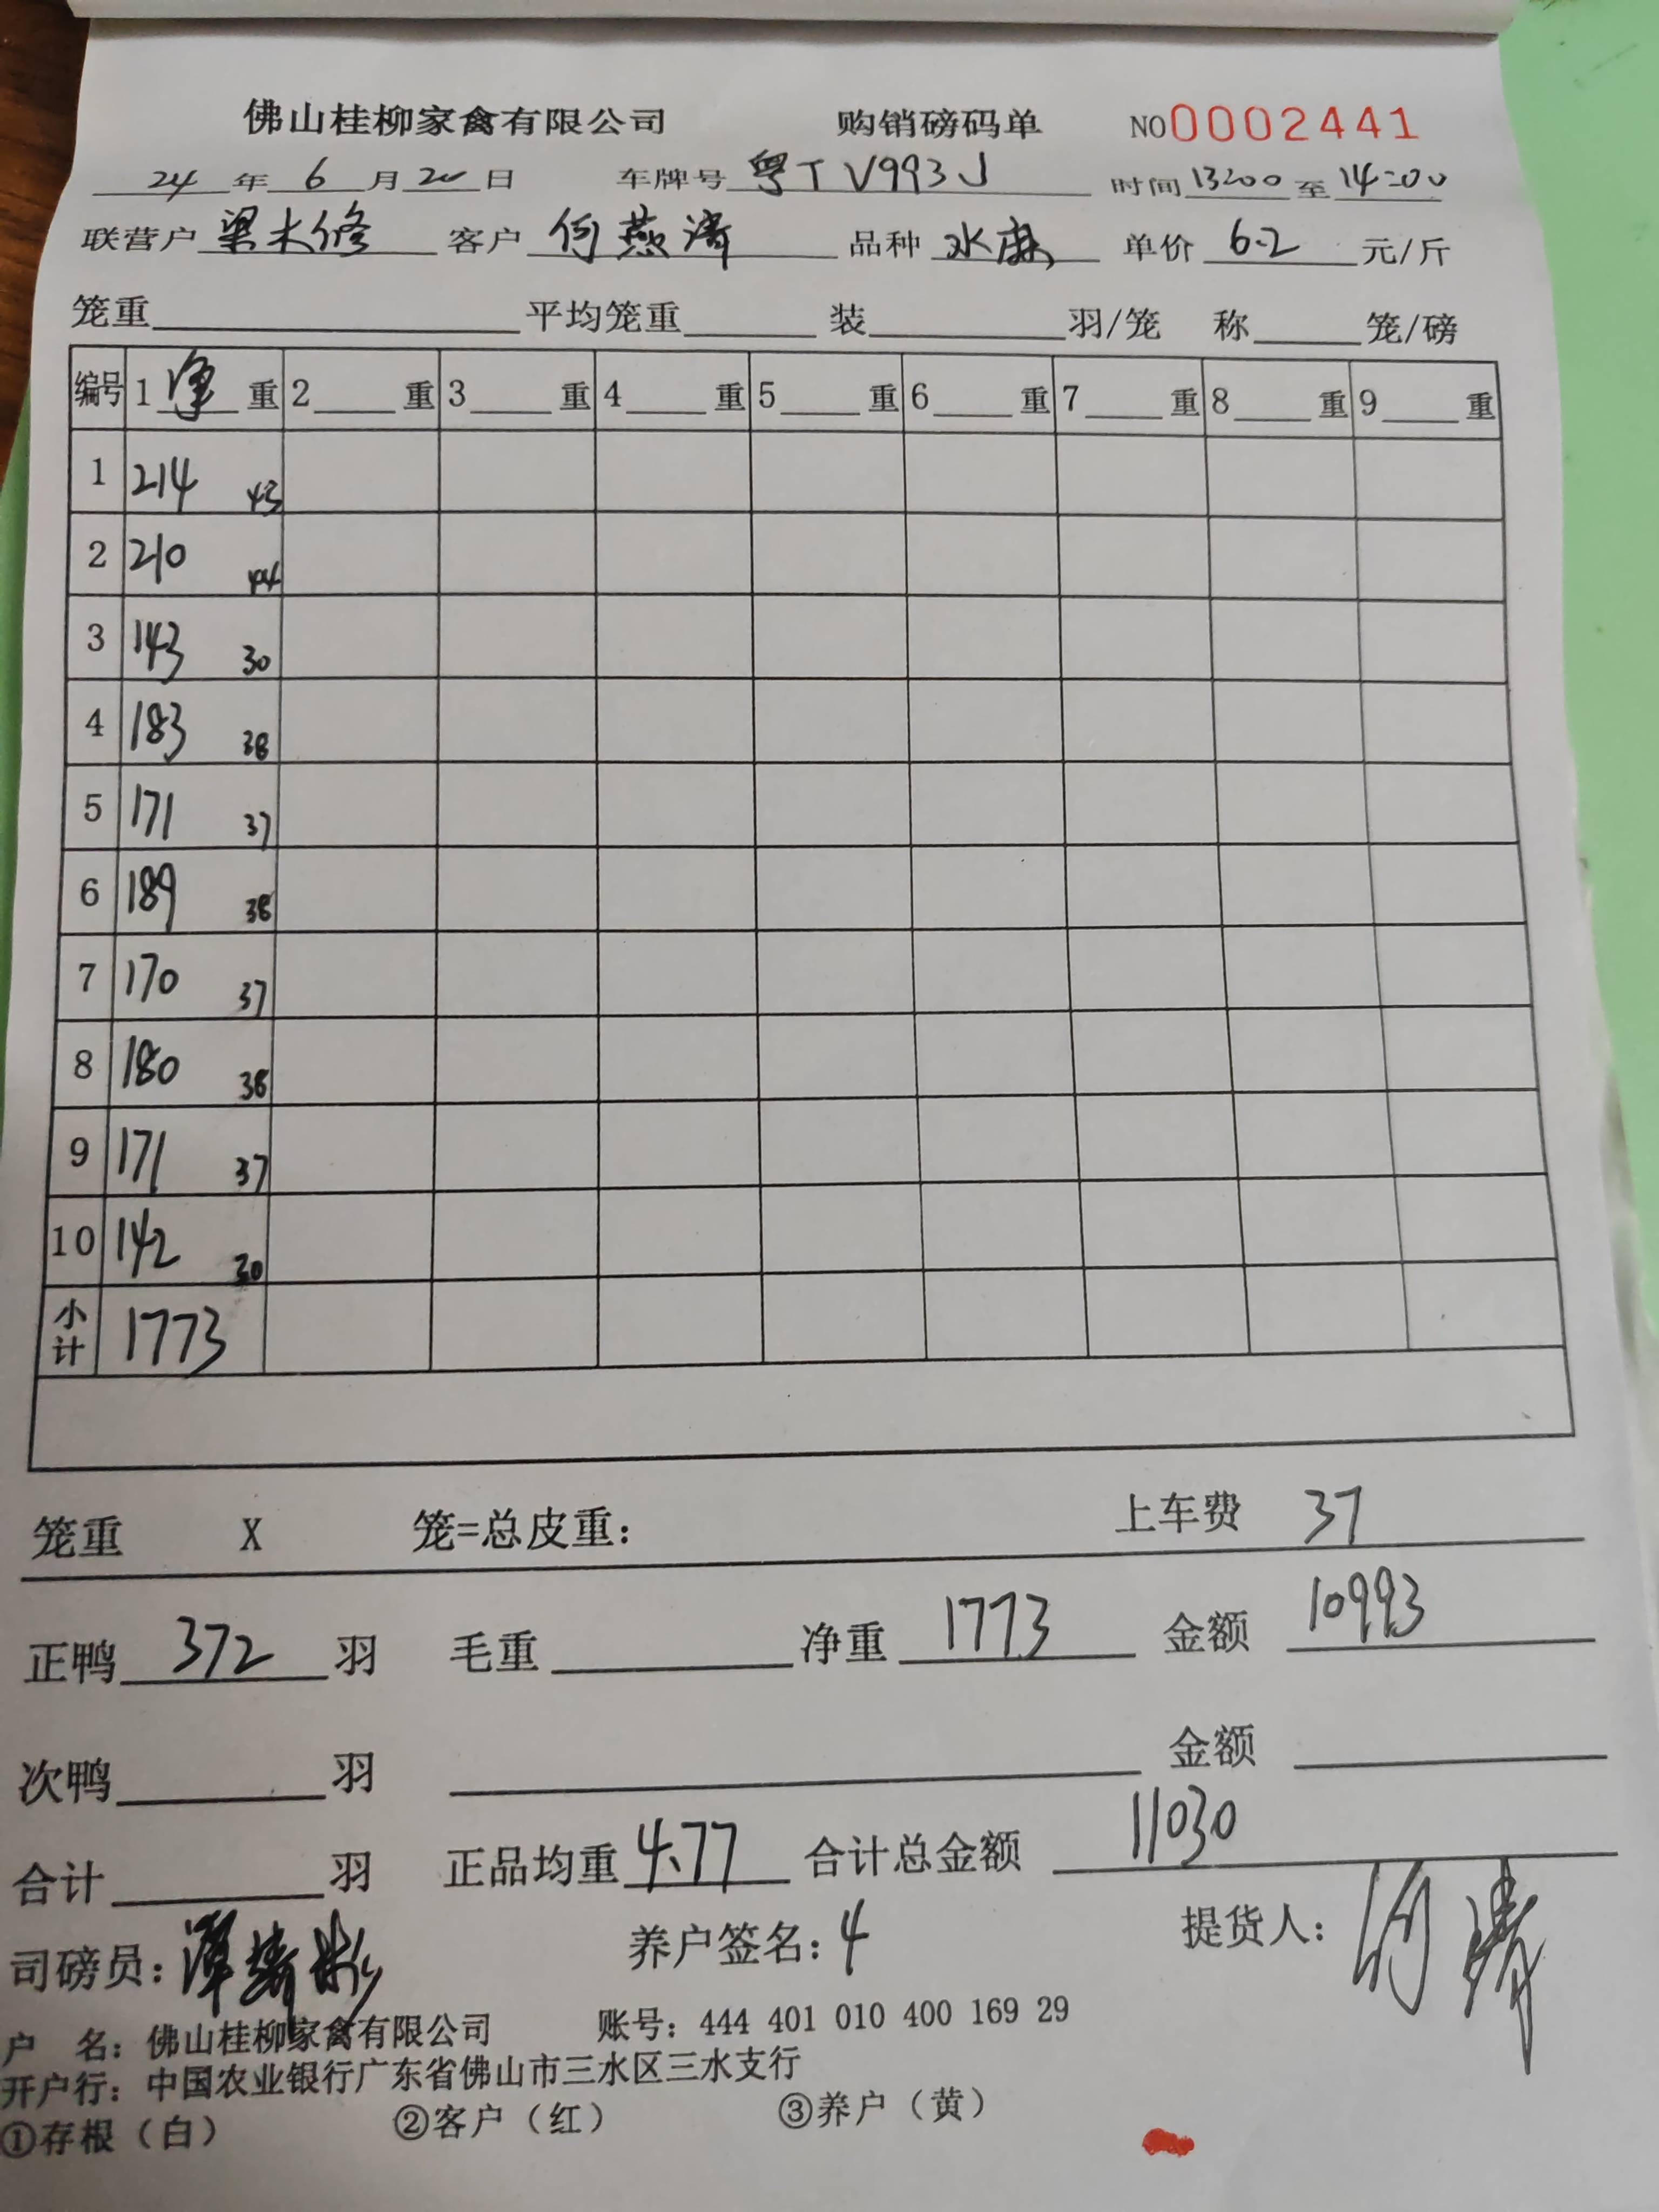 佛山桂柳家禽有限公司 购销磅码单 NO0002441
24年6月20日 车牌号 粤TV993J 时间13:00至14:00
联营户 梁木修 客户 何燕涛 品种 水麻 单价 6.2 元/斤
笼重 平均笼重 装 羽/笼 称 笼/磅
编号 1净重 2 重 3 重 4 重 5 重 6 重 7 重 8 重 9 重
1 214 43
2 210 44
3 143 30
4 183 38
5 171 37
6 189 38
7 170 37
8 180 38
9 171 37
10 142 30
小计 1773
笼重 X 笼=总皮重: 上车费 37
正鸭 372 羽 毛重 净重 1773 金额 10993
次鸭 羽 金额
合计 羽 正品均重 4.77 合计总金额 11030
司磅员: 养户签名: 4 提货人:
户 名: 佛山桂柳家禽有限公司 账号: 444 401 010 400 169 29
开户行: 中国农业银行广东省佛山市三水区三水支行
①存根（白） ②客户（红） ③养户（黄）